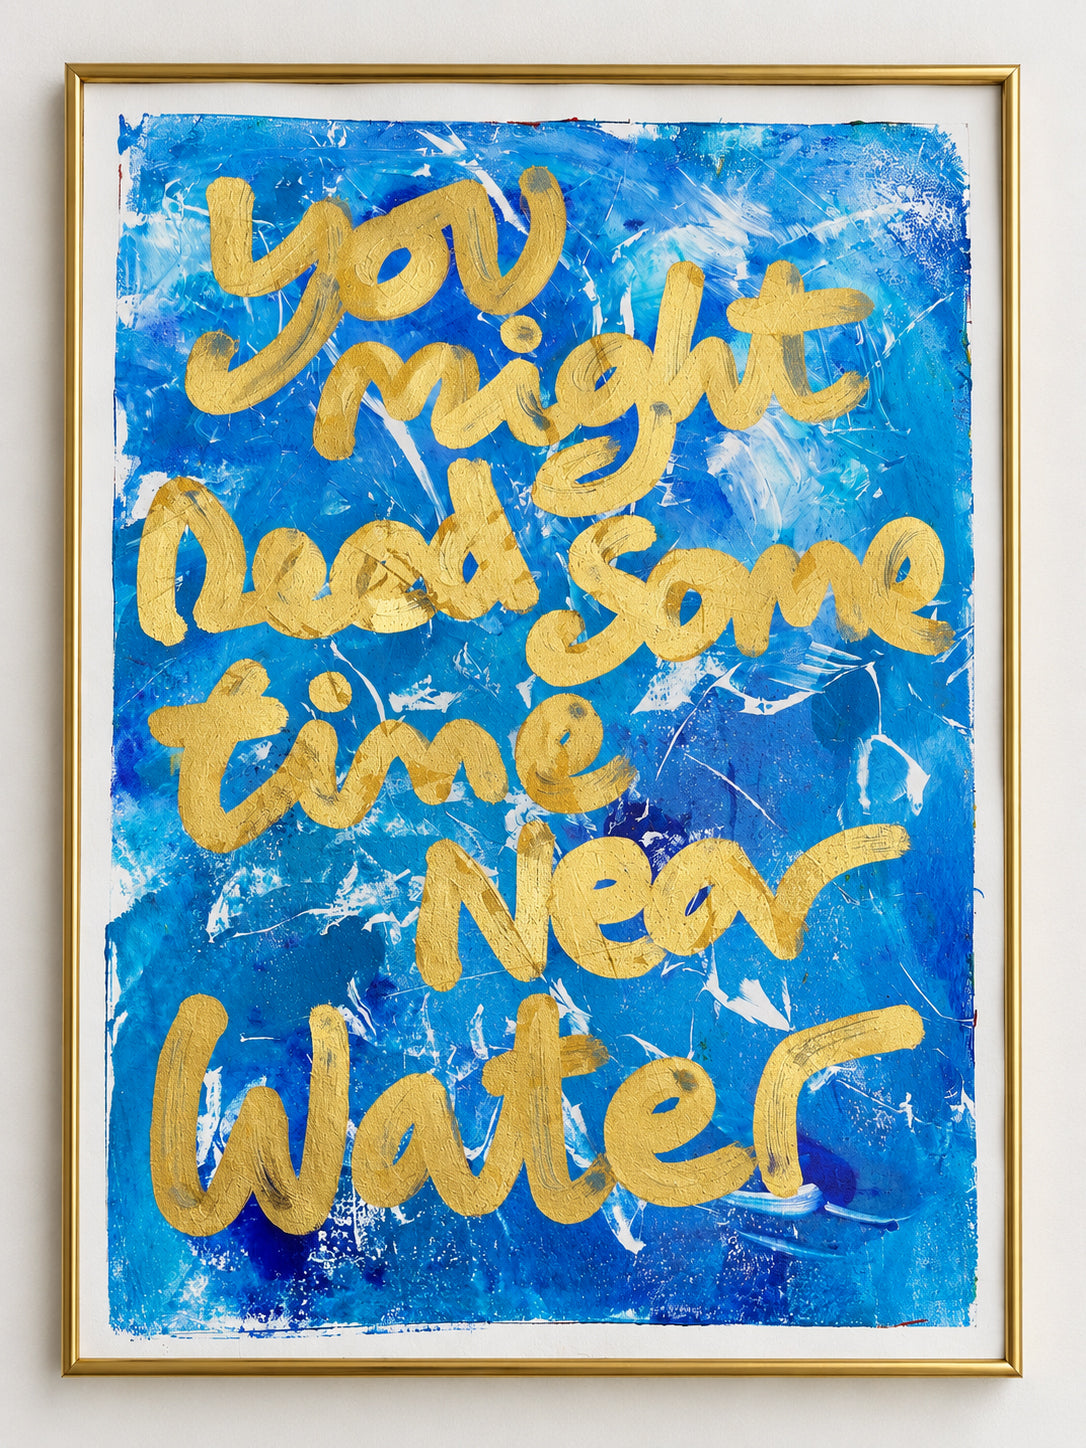 you
might
need some
time
Near
Water